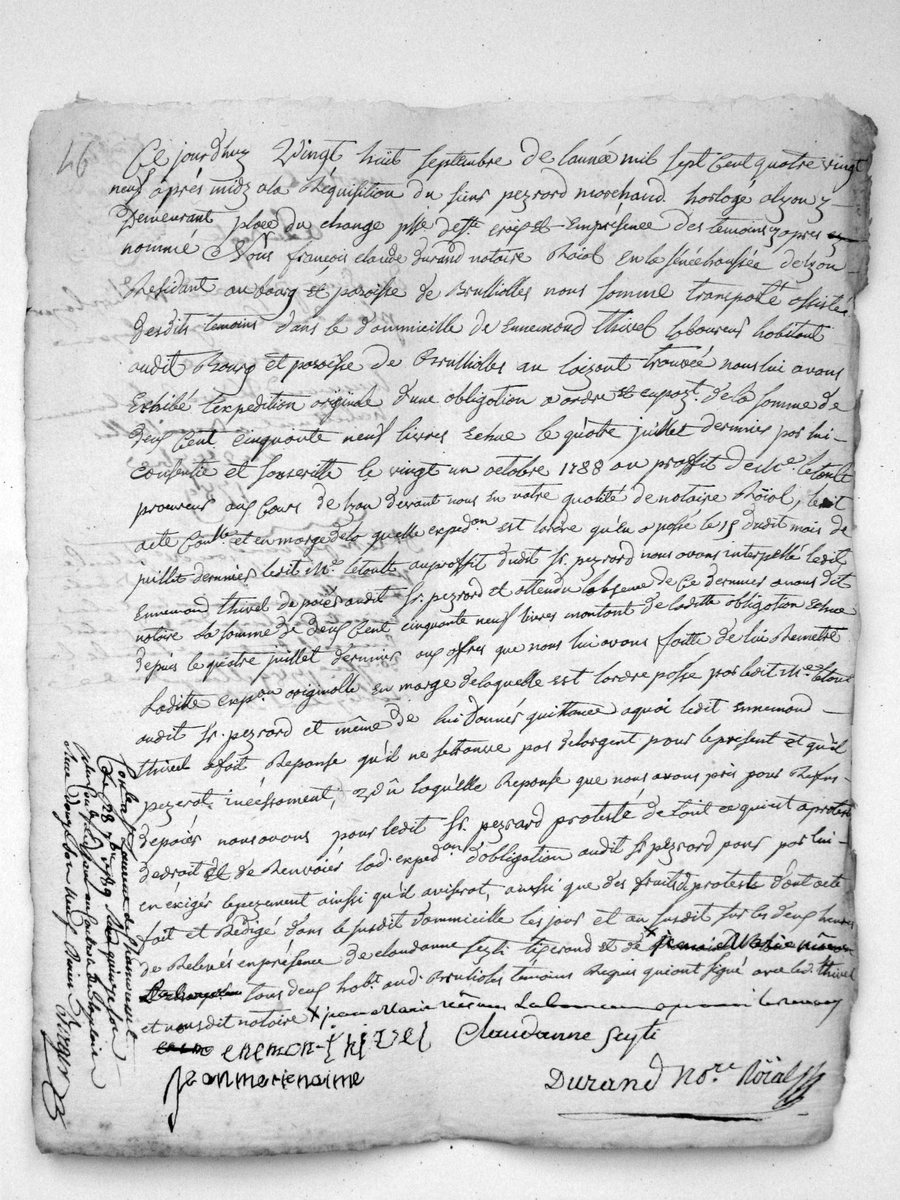 46
Ce jourdhuy Vingt huit septembre de lannée mil sept Cent quatre vingt
neuf après midy ala Réquisition du sieur pezrard marchand horlogé alyon y
Demeurant place du change psse de ste croix et Empresence des temoins y apres
nommé Nous françois claude durand notaire Roïal En la sénéchaussée de lyon
Residant au bourg et paroisse de Brullioles nous somme transporté assistés
desdits temoins dans le dommicille de Ennemond thivel laboureur habitant
audit Bourg et paroisse de Brullioles au loizant trouvée nous lui avons
Exhibé lexpedition originale dune obligation a ordre et en de la somme de
deux Cent cinquante neuf livres Echue le quatre juillet dernier par lui
consentie et souscritte le vingt un octobre 1788 au proffit de Me letoulle
procureur aux Cours de lyon devant nous en notre qualité de notaire Roïal, ledit
acte et en marge de laquelle expedon est lordre qu'en a passé le 15 dudit mois de
juillet dernier ledit Me letoulle auproffit dudit Sr pezrard nous avons interpellé ledit
Ennemond thivel de paiér audit Sr pezrard et attendu labsence de Ce dernier anous dit
notaire la somme de deux Cent cinquante neuf livres montant de laditte obligation Echue
depuis le quatre juillet dernier aux offres que nous lui avons faitte de lui Remetre
laditte expon originalle en marge de laquelle est lordre passé par ledit Me letoulle
audit Sr pezrard et même de lui donnér quittance aquoi ledit ennemond
thivel a fait Reponse qu'il ne se trouve pas delargent pour le present et qu'il
pezerat incéssament, Vû laquelle Reponse que nous avons pris pour Refus
depaiér nous avons pour ledit Sr pezrard protesté de tout ce qui est a protesté
dedroit Et de Renvoiér lad. expedon d'obligation audit Sr pezrard pour par lui
en éxigér lepezement ainssi qu'il avisirat, ainssi que des fraits du proteste dont acte
fait et Rédigé dans le susdit dommicille les jour et an susdit sur les deux heures
de Relevés en présence de claudanne Seyti tigerand et de
tous deux habt. aud. Brullioles temoins Requis qui ont signé avec led. thivel
et nousdit notaire x jean Marie néime
enemon thivel Claudanne Seyti
Jeanmarienaime
Durand Nore Roïal